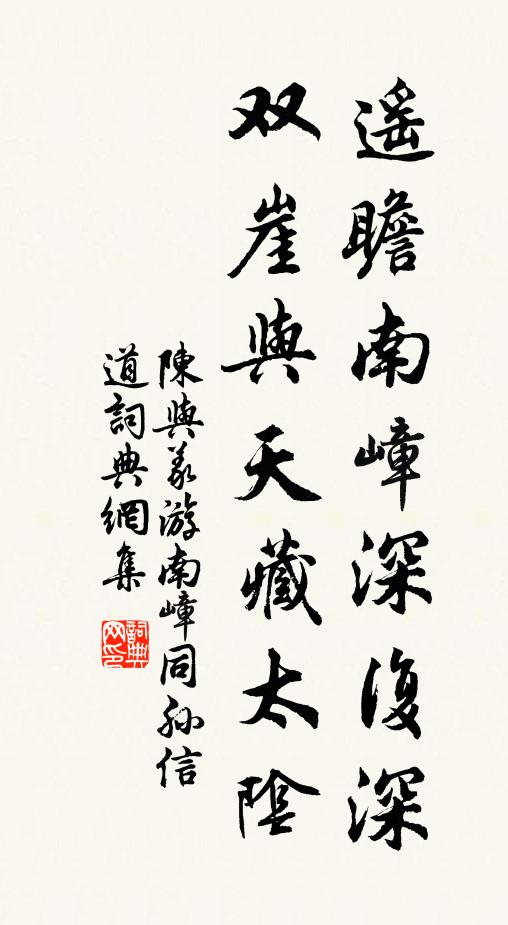 遥瞻南嶂深復深
双崖與天藏太陰
陳與義游南嶂同孙信
道詞典網集
詞典网印